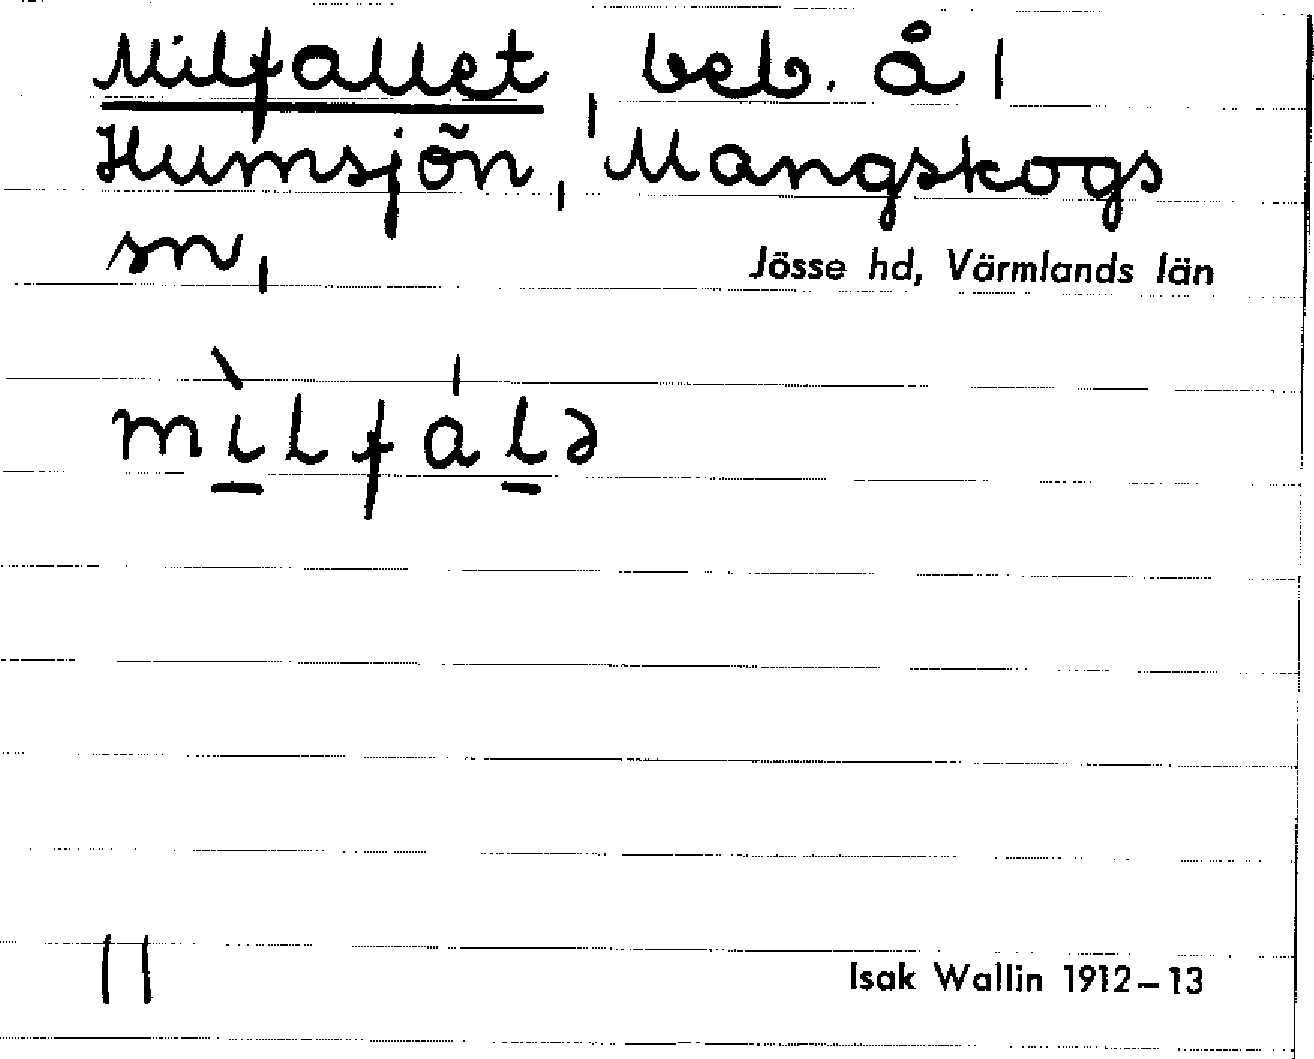 Milfallet, beb. å 1
Humsjön, Mangskogs
sn,
Jösse hd, Värmlands län
mìlfálə
11
Isak Wallin 1912–13